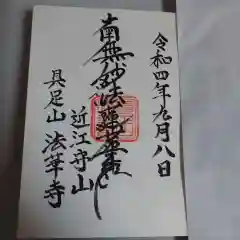 令和四年九月八日
南無妙法蓮華経
近江寺山
具足山 法華寺